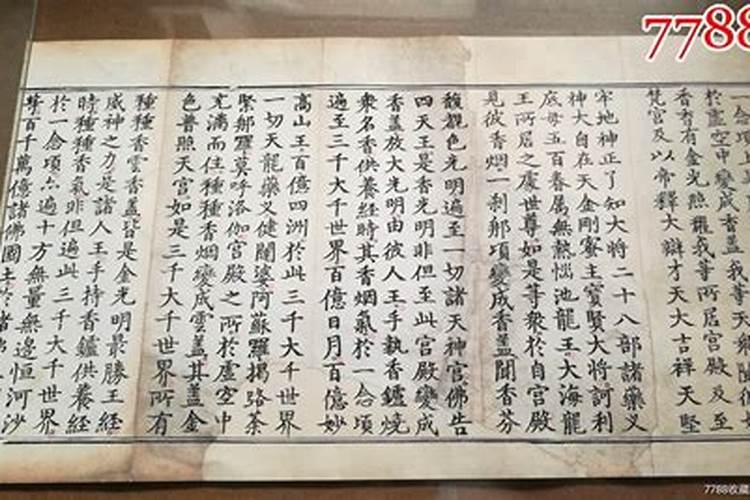 於虛空中變成香蓋我等天
香香有金光照曜我等所居宮殿乃至
梵宮及以帝釋大辯才天大吉祥天堅
牢地神正了知大將二十八部諸藥叉
神大自在天金剛密主寶賢大將訶利
底母五百眷属無熱惱池龍王大海龍
王所居之處世尊如是等衆於自宮殿
見彼香烟一刹那頃變成香蓋聞香芬
馥覩色光明遍至一切諸天神宮佛告
四天王是香光明非但至此宮殿變成
香蓋放大光明由彼人王手執香鑪燒
衆名香供養經時其香烟氣於一念頃
遍至三千大千世界百億日月百億妙
高山王百億四洲於此三千大千世界
一切天龍藥叉健闥婆阿蘇羅揭路荼
緊那羅莫呼洛伽宮殿之所於虛空中
充滿而住種種香烟變成雲蓋其蓋金
色普照天宮如是三千大千世界所有
種種香雲香蓋皆是金光明最勝王經
威神之力是諸人王手持香鑪供養經
時種種香氣非但遍此三千大千世界
於一念頃亦遍十方無量無邊恒河沙
等百千萬億諸佛國土於諸佛
7788
7788收藏